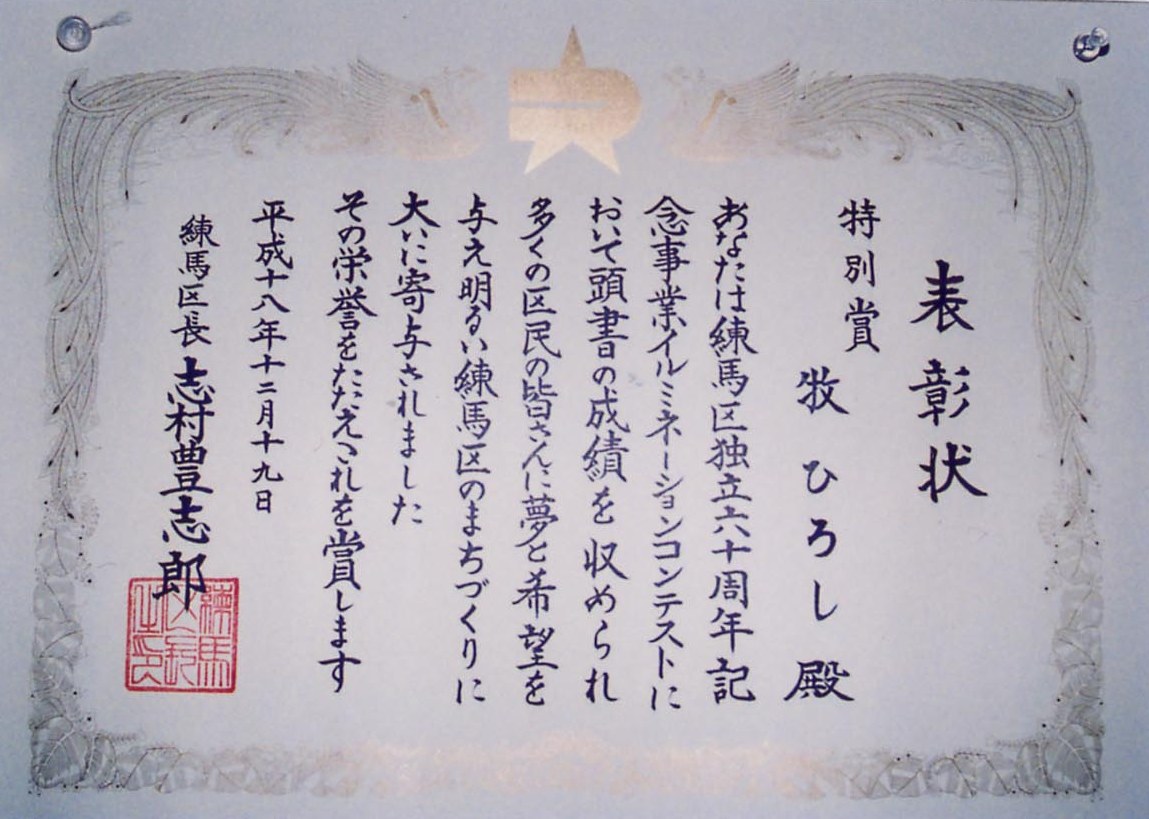 表彰状
特別賞
牧ひろし殿
あなたは練馬区独立六十周年記
念事業イルミネーションコンテストに
おいて頭書の成績を収められ
多くの区民の皆さんに夢と希望を
与え明るい練馬区のまちづくりに
大いに寄与されました
その栄誉をたたえこれを賞します
平成十八年十二月十九日
練馬区長 志村豊志郎
練馬
区長
之印